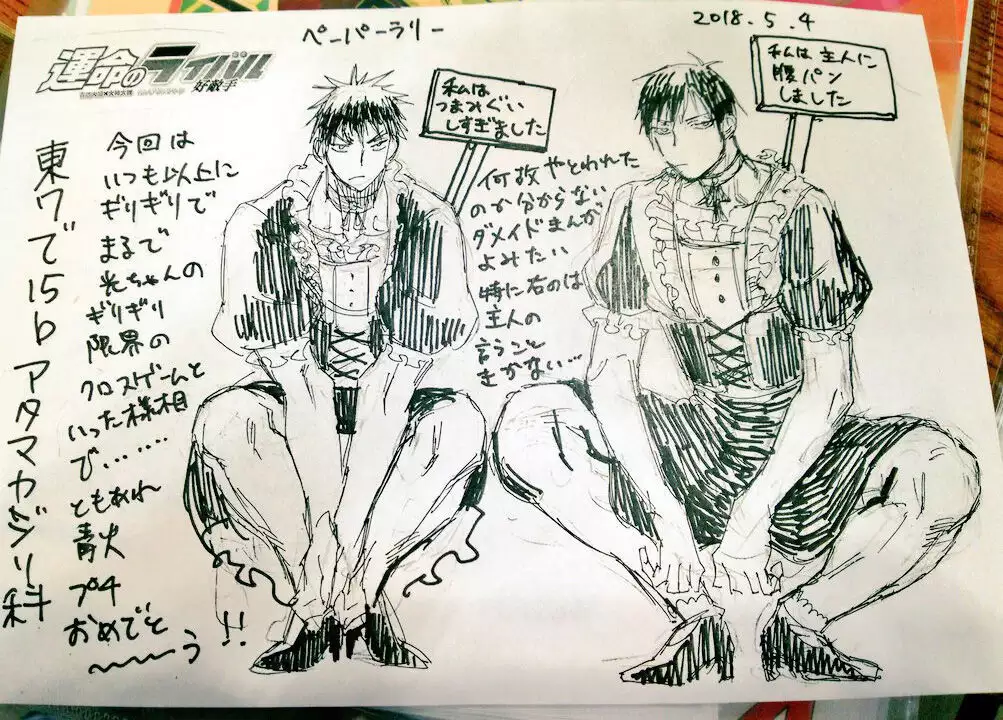 ペーパーラリー
2018.5.4
運命のライバル
好敵手
私は
つまみぐい
しすぎました
私は主人に
腹パン
しました
東ワで15b アタマカジリ科
今回は
いつも以上に
ギリギリで
まるで
光ちゃんの
ギリギリ
限界の
クロスゲームと
いった様相
で……
ともあれ
青火
プチ
おめでと
〜〜う!!
何故やとわれた
のか分からない
ダメイドまんが
よみたい
特に右のは
主人の
言うこと
きかない…